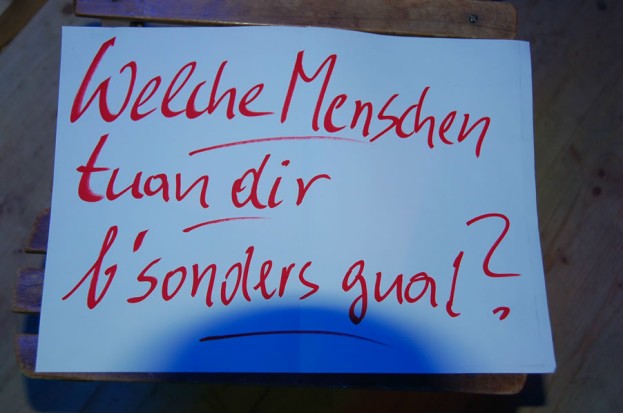 Welche Menschen
tuan dir
b'sonders guat?